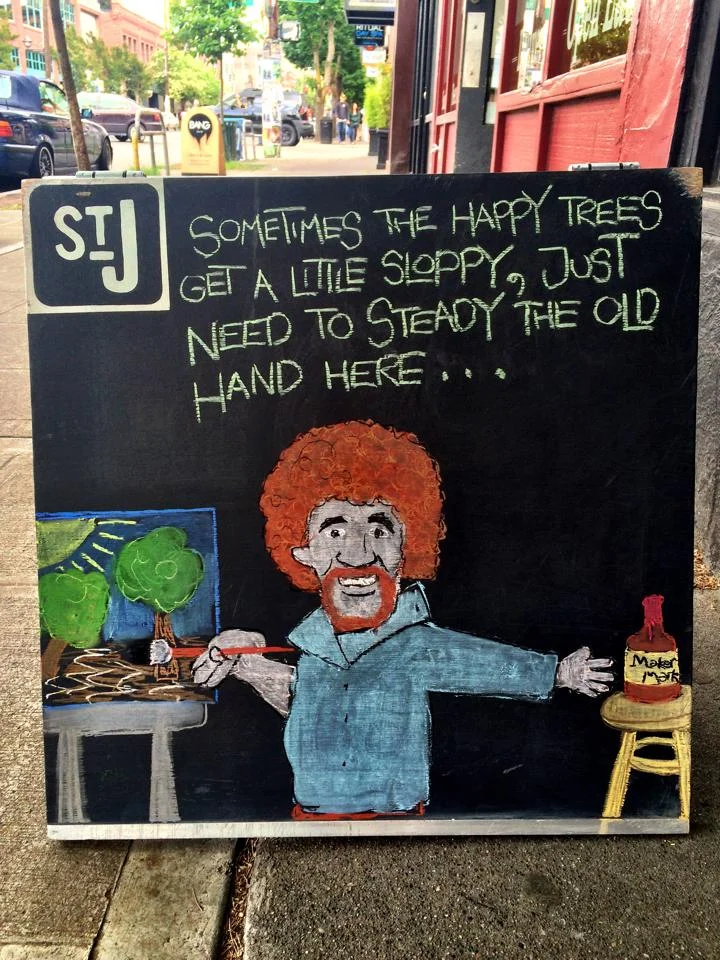 RITUAL
BANG
ST J
SOMETIMES THE HAPPY TREES
GET A LITTLE SLOPPY, JUST
NEED TO STEADY THE OLD
HAND HERE...
Maker
Mark